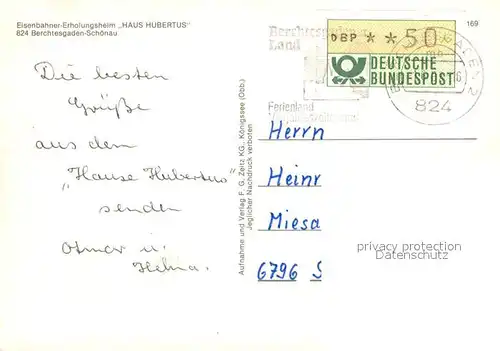 Eisenbahner-Erholungsheim „HAUS HUBERTUS"
824 Berchtesgaden-Schönau
169
Berchtesgadener
Land
DBP ** 50
DEUTSCHE
BUNDESPOST
824
Ferienland
Die besten
Grüße
aus dem
"Hause Hubertus"
senden
Otmar u.
Helma.
Aufnahme und Verlag F. G. Zeitz KG., Königssee (Obb.)
Jeglicher Nachdruck verboten
Herrn
Heinr
Miesa
6796 S
privacy protection
Datenschutz